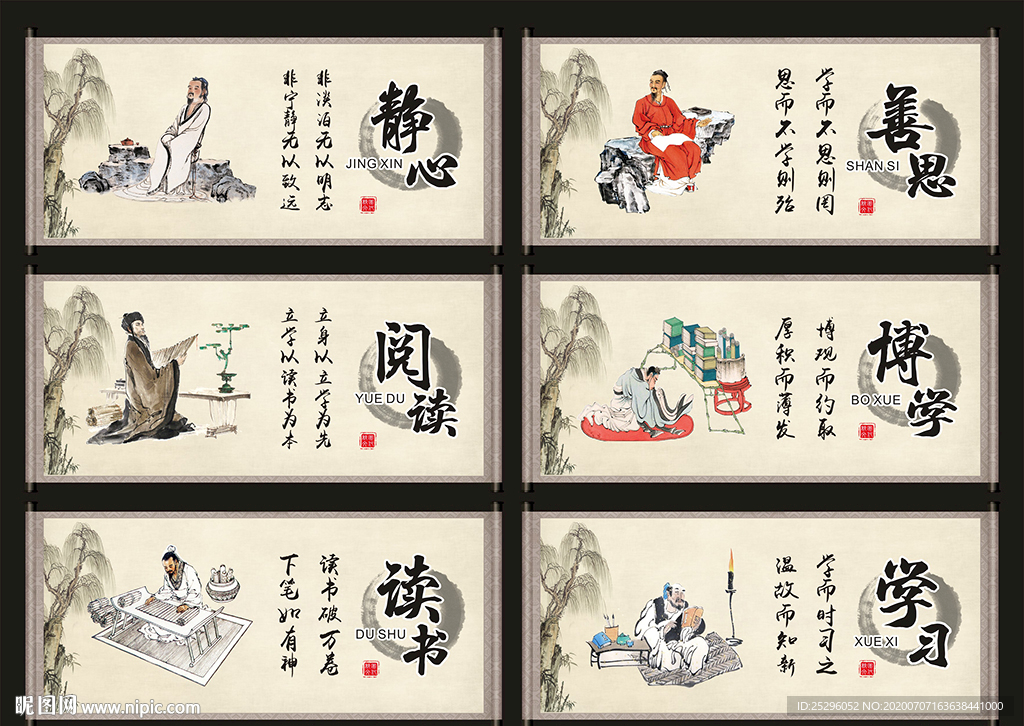 静心
JING XIN
非淡泊无以明志
非宁静无以致远
善思
SHAN SI
学而不思则罔
思而不学则殆
阅读
YUE DU
立身以立学为先
立学以读书为本
博学
BO XUE
博观而约取
厚积而薄发
读书
DU SHU
读书破万卷
下笔如有神
学习
XUE XI
学而时习之
温故而知新
昵图网 www.nipic.com
ID:25296052 NO:20200707163638441000